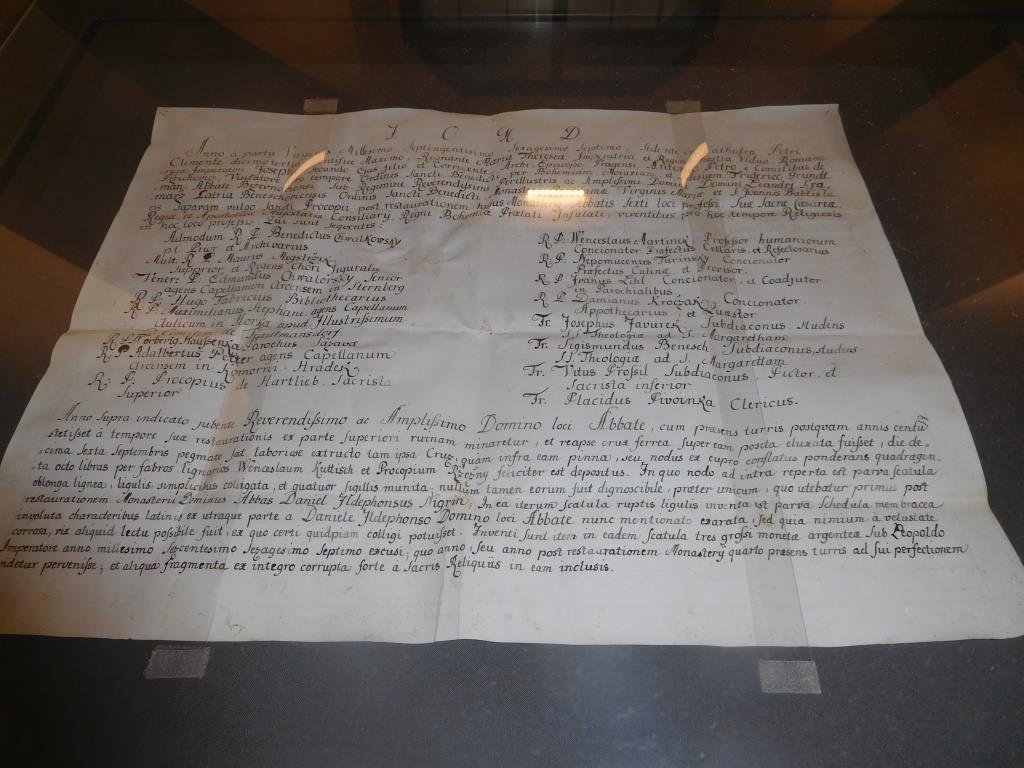 I O M D
Anno à partu Virginis Millesimo Septingentisimo Sexagesimo Septimo, Sedente Cathedra Petri
Clemente decimo tertio Pontifice Maximo, Regnante Maria Theresia Imperatrice et Regina Vidua Romano
rum Imperatori Josepho Secundo Ejus filio et Corregente, Archi Episcopo Pragensi Antonio Petro e Comitibus de
Visitatore pro tempore Ordinis Sancti Benedicti per Bohemiam, Moraviam, et Silesiam Friderico Grundt
man, Abbate Brzevnoviensi Sub Regimine Reverendissimi Perillustris ac Amplissimi Domini Domini Leandri Kra
marz Ordinis Sancti Benedicti Monasterii Virginis Mariæ et S. Joannis Baptistæ
ens Sazavam vulgo Sancti Procopii post restaurationem hujus Monasterii Abbatis Sexti loci professi Suæ Sacræ Cæsareæ
Regiæ, et Apostolicæ Majestatis Consiliary, Regni Bohemiæ Prælati Infulati, viventibus pro hoc tempore Religiosis
in hoc loco professis. Qui Sunt Sequentes:
Admodum R. P. Benedictus Chwalkowsky
p.t. Prior et Archivarius
Mult: R. P. Maurus
Superior et Regens Chori Figuralis
Vener: P. Edmundus Chwalovsky Senior
agens Capellanum Arcensem in Sternberg
R. P. Hugo Fabricius Bibliothecarius
R. P. Maximilianus Stephani agens Capellanum
Aulicum in Horka apud Illustrissimum
Comitem de Trautmansdorf
R. P. Norbertus Parochus Sazavæ
R. P. Adalbertus Peter agens Capellanum
Arcensem in Komorni Hradek
R. P. Procopius de Hartlieb. Sacrista
Superior
R. P. Wenceslaus Martinek Professor humaniorum
Concionator Præfectus Cellaris, et Refectorarius
R. P. Nepomucenus Turinsky Concionator
Præfectus Culinæ et Provisor.
R. P. Franyus Lihl Concionator, et Coadjutor
in Parochialibus.
R. P. Damianus Kroczak Concionator
Appothecarius, et Quæstor
Fr. Josephus Javurek Subdiaconus, studens
SS. Theologiæ ad S. Margaretham
Fr. Sigismundus Benesch Subdiaconus, studens
SS. Theologiæ ad S. Margarettam
Fr. Vitus Prossil Subdiaconus Pictor, et
Sacrista inferior
Fr. Placidus Pivoinka Clericus.
Anno supra indicato jubente Reverendissimo ac Amplissimo Domino loci Abbate, cum præsens turris postquam annis centu
stetisset à tempore suæ restaurationis ex parte superiori ruinam minaretur, et reapse crux ferrea super eam posita eluxata fuisset, die de=
cima Sexta Septembris pegmate sat laboriose extructo tam ipsa Crux, quam infra eam pinna, seu nodus ex cupro conflatus ponderans quadragin=
ta octo libras per fabros lignarios Wenceslaum Kuttisch et Procopium feliciter est depositus. In quo nodo ab intra reperta est parva scatula
oblonga lignea, ligulis simplicibus colligata, et quatuor sigillis munita, nullum tamen eorum fuit dignoscibile, præter unicum, quo utebatur primus post
restaurationem Monasterii Dominus Abbas Daniel Ildephonsus Nigrin. In ea iterum Scatula ruptis ligulis inventa est parva Schedula membracea
involuta characteribus latinis ex utraque parte a Daniele Ildephonso Domino loci Abbate nunc mentionato exarata, sed quia nimium à vetustate
corrosa, vix aliquid lectu possibile fuit, ex quo certi quidpiam colligi potuisset. Inventi sunt item in eadem Scatula tres grossi monetæ argenteæ Sub Leopoldo
Imperatore anno millesimo Sexcentesimo Sexagesimo Septimo excusi; quo anno, seu anno post restaurationem Monastery quarto præsens turris ad sui perfectionem
videtur pervenisse; et aliqua fragmenta ex integro corrupta forte à Sacris Reliquiis in eam inclusis.